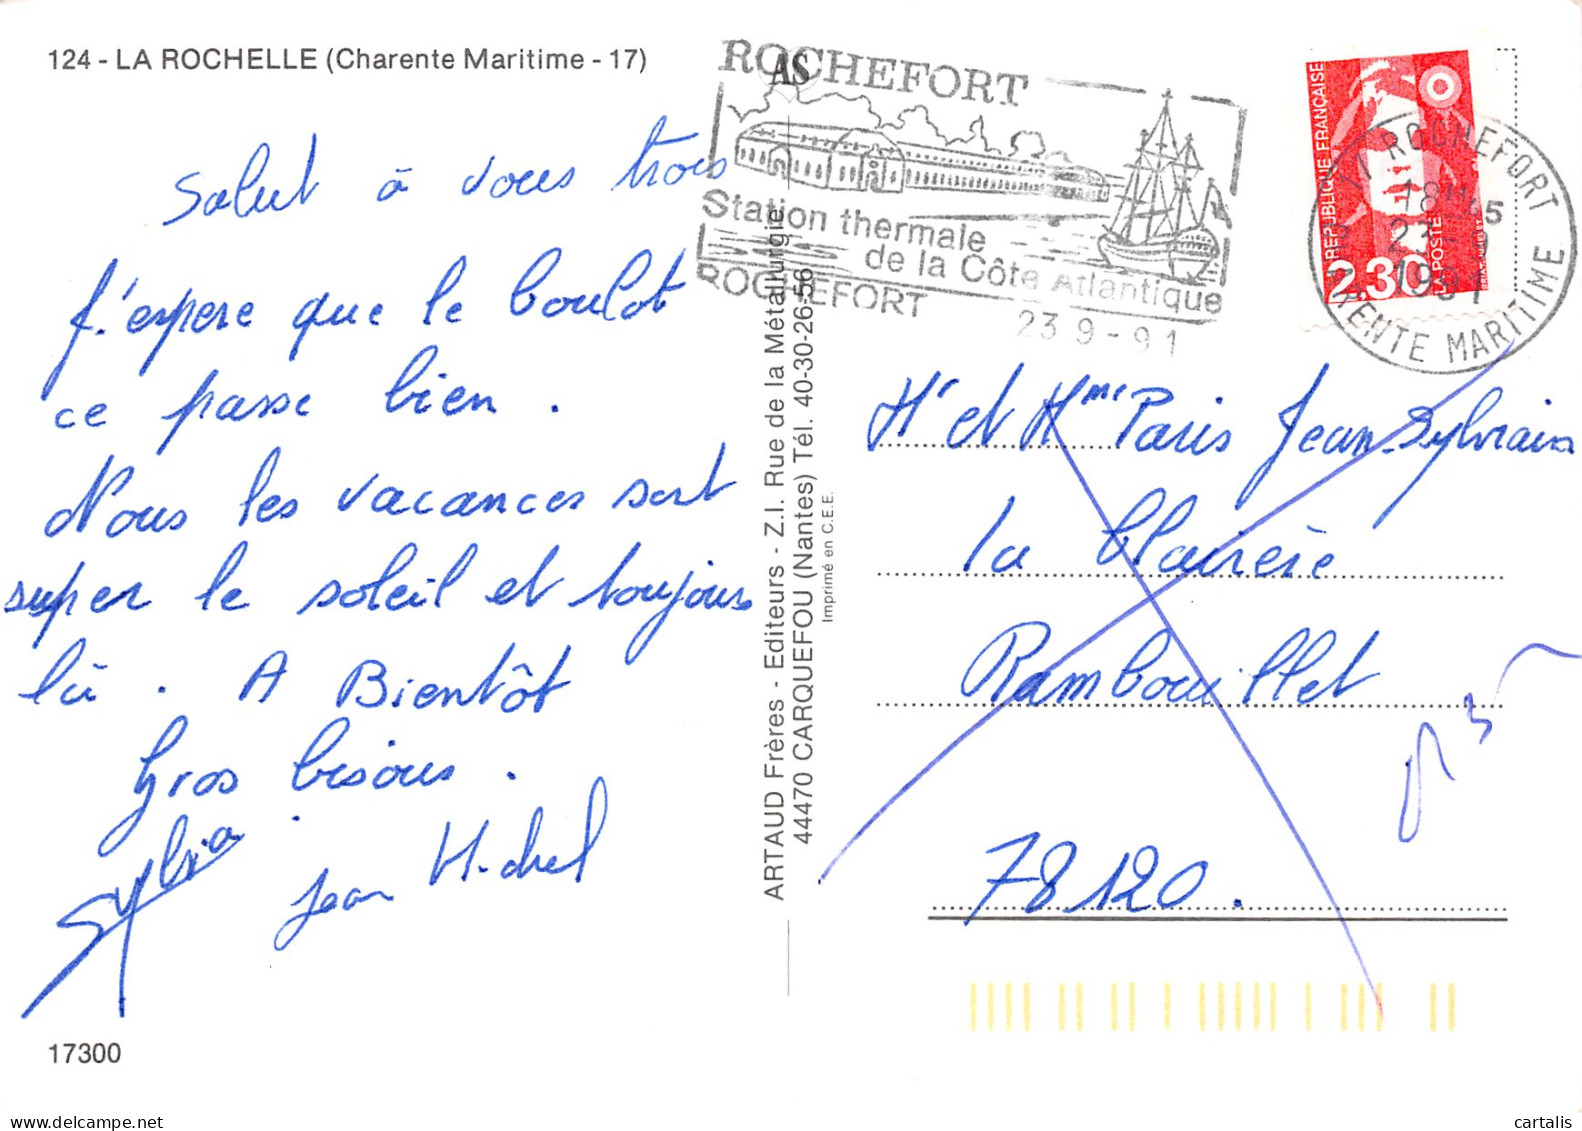 124 - LA ROCHELLE (Charente Maritime - 17)
Salut à vous trois
J'espere que le boulot
ce passe bien.
Nous les vacances sont
super le soleil et toujours
là. A Bientôt
Gros bisous.
Sylvia
Jean Michel
17300
ARTAUD Frères - Editeurs - Z.I. Rue de la Métallurgie
44470 CARQUEFOU (Nantes) Tél. 40-30-26-56
Imprimé en C.E.E.
AS
ROCHEFORT
Station thermale
de la Côte Atlantique
ROCHEFORT
23 9 - 91
REPUBLIQUE FRANÇAISE
2,30
LA POSTE
17 ROCHEFORT
18H45
1991
CHARENTE MARITIME
Mr et Mme Paris Jean-Sylvain
la Clairière
Rambouillet
78120.
cartalis